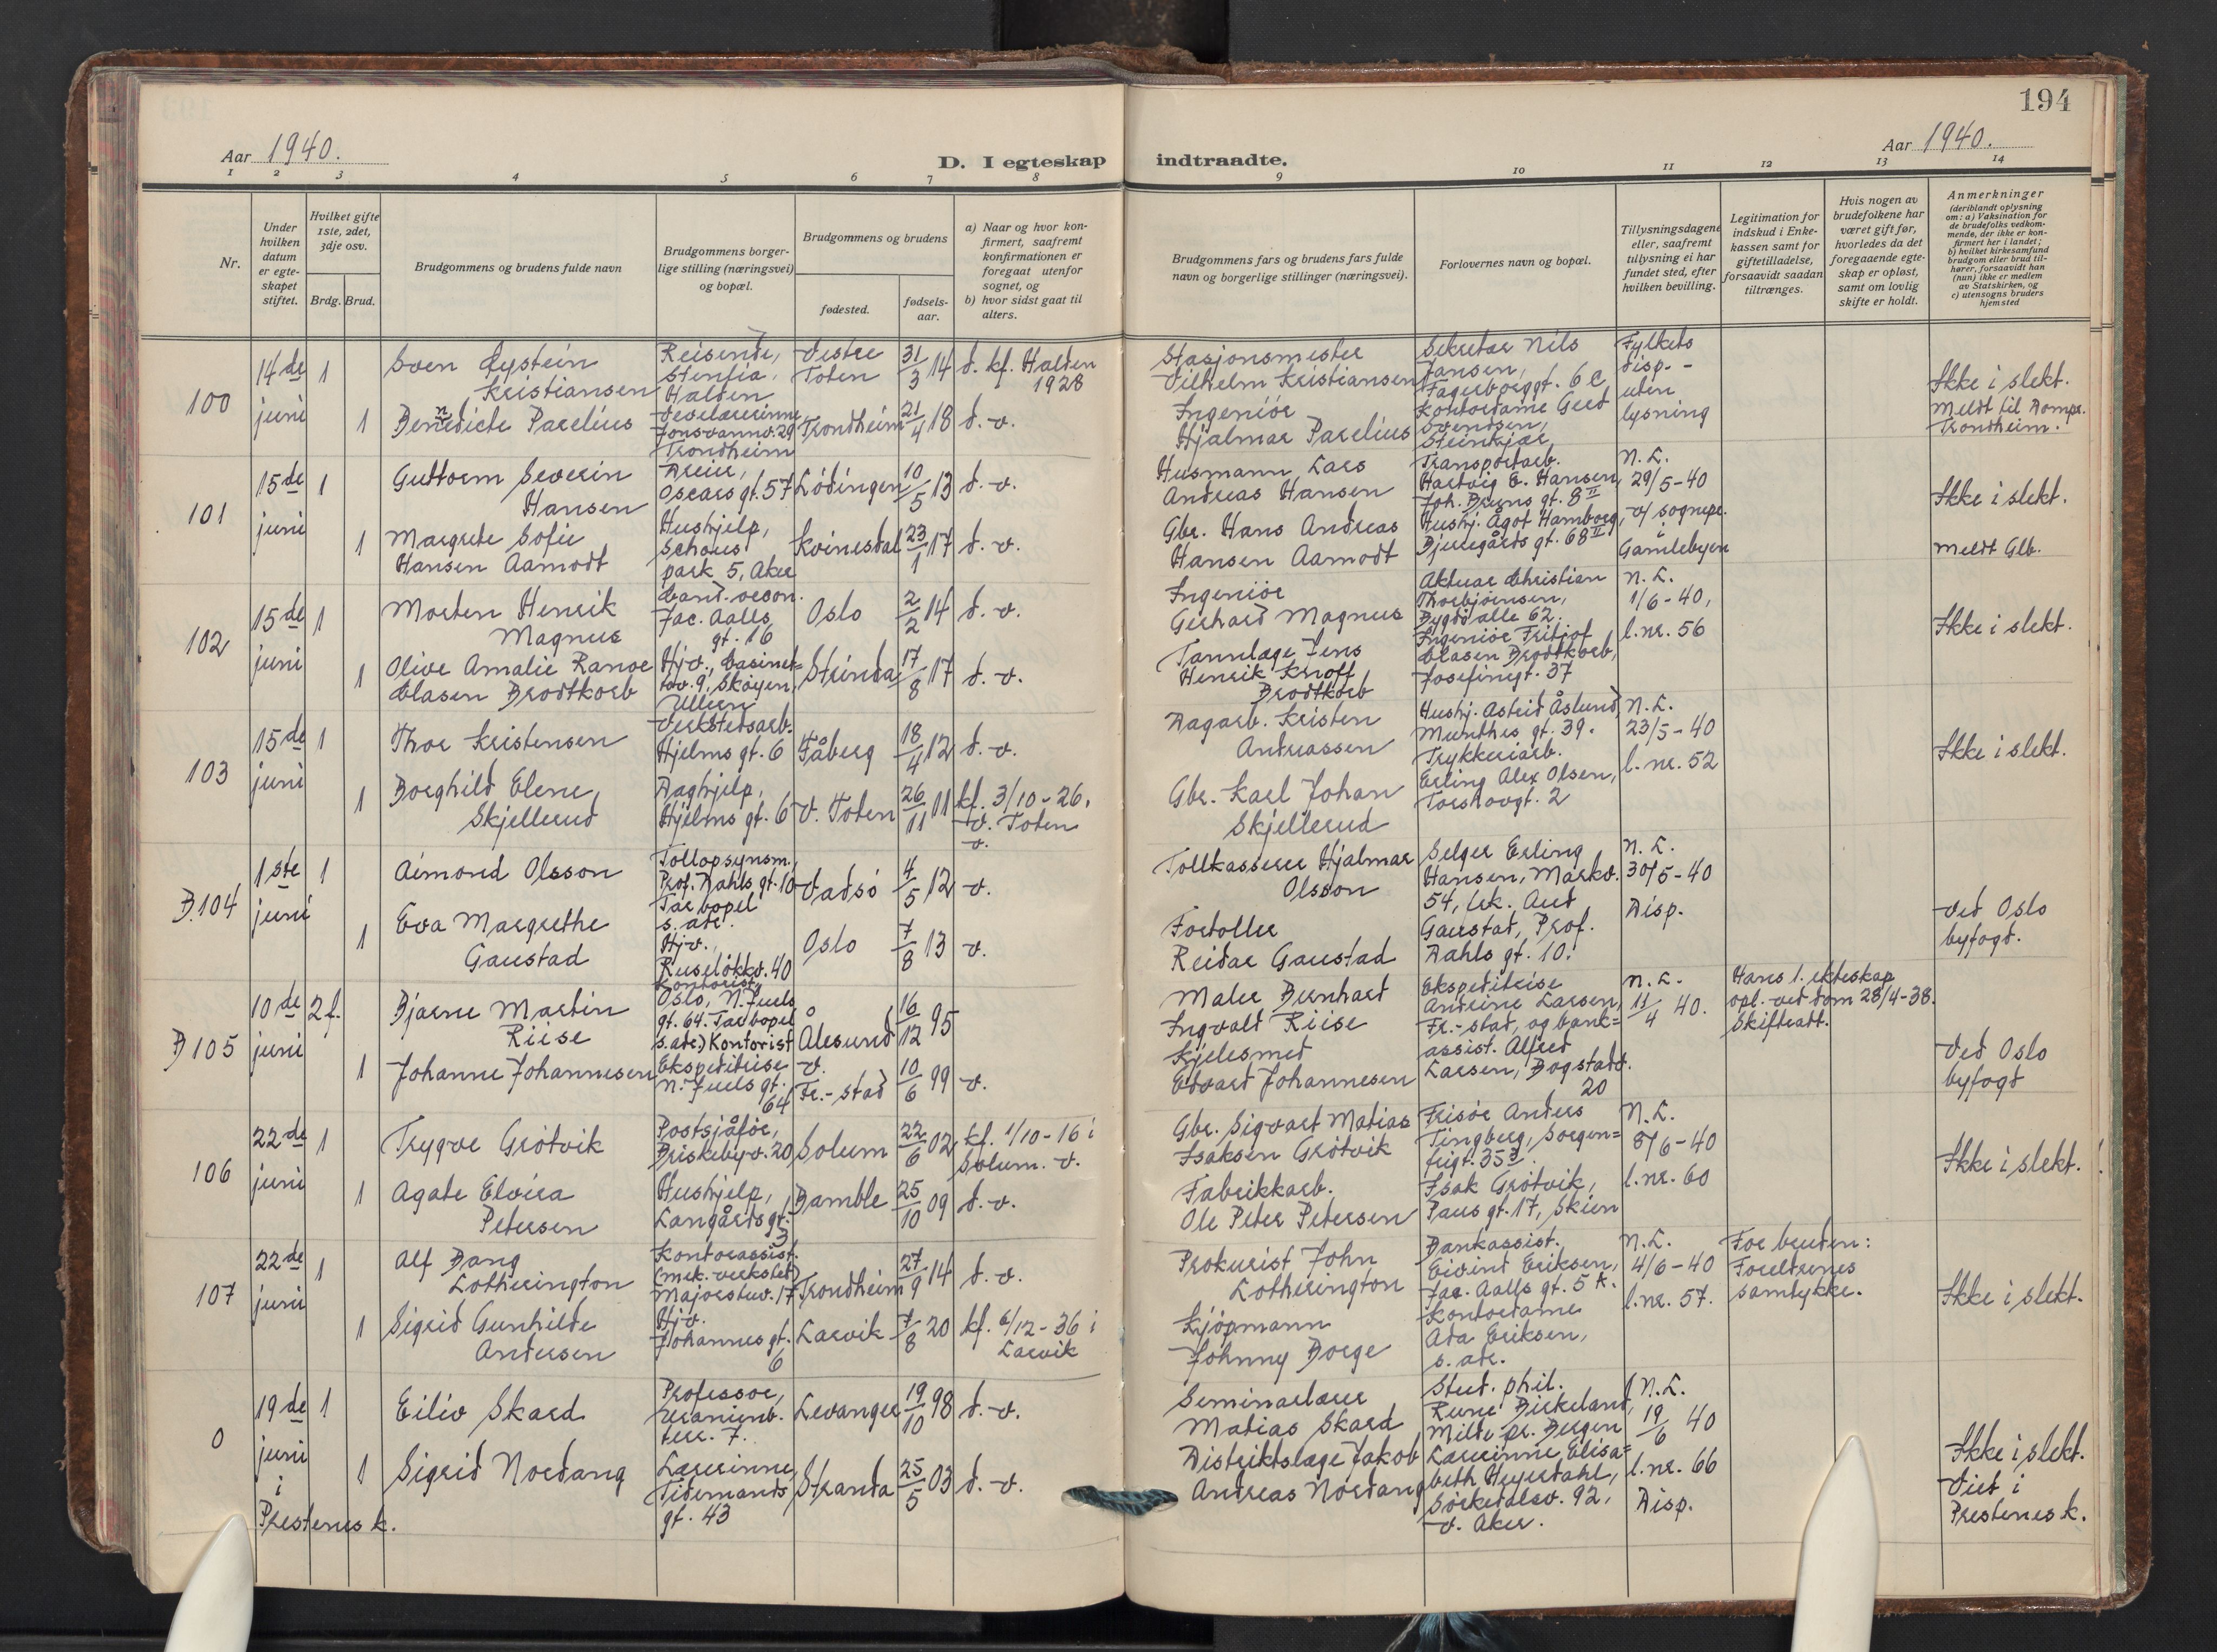 194
Aar 1940.
D. I egteskap indtraadte.
Aar 1940.
1 2 3 4 5 6 7 8 9 10 11 12 13 14
Nr.
Under hvilken datum er egteskapet stiftet.
Hvilket gifte 1ste, 2det, 3dje osv.
Brdg. Brud.
Brudgommens og brudens fulde navn
Brudgommens borgerlige stilling (næringsvei) og bopæl.
Brudgommens og brudens
fødested.
fødselsaar.
a) Naar og hvor konfirmert, saafremt konfirmationen er foregaat utenfor sognet, og
b) hvor sidst gaat til alters.
Brudgommens fars og brudens fars fulde navn og borgerlige stillinger (næringsvei).
Forlovernes navn og bopæl.
Tillysningsdagene eller, saafremt tillysning ei har fundet sted, efter hvilken bevilling.
Legitimation for indskud i Enkekassen samt for giftetilladelse, forsaavidt saadan tiltrænges.
Hvis nogen av brudefolkene har været gift før, hvorledes da det foregaaende egteskap er opløst, samt om lovlig skifte er holdt.
Anmerkninger
(deriblandt oplysning om: a) Vaksination for de brudefolks vedkommende, der ikke er konfirmert her i landet;
b) hvilket kirkesamfund brudgom eller brud tilhører, forsaavidt han (hun) ikke er medlem av Statskirken, og
c) utensogns bruders hjemsted
100
14de juni
1
Sven Øystein
Kristiansen
Reisende,
Stenfia,
Halden
Vestre
Toten
31/3 14
d. kf. Halden
1928
Stasjonsmester
Vilhelm Kristiansen
Sekretær Nils
Jansen,
Fagerborggt. 6 C
Fylkets
disp. -
uten
lysning
Ikke i slekt.
Meldt til Dompr.
Trondheim.
1
Bennedicte Parelius
Vevelærerinne
Jonsvannv. 29
Trondheim
Trondheim
21/4 18
d. v.
Ingeniör
Hjalmar Parelius
Kontordame Gerd
Svendsen,
Steinkjær,
101
15de juni
1
Guttorm Severin
Hansen
Dreier,
Oscars gt. 57
Lödingen
10/5 13
d. v.
Husmann Lars
Andreas Hansen
Transportarb.
Hartvig E. Hansen,
Joh. Bruns gt. 8 II
N. L.
29/5-40
v/ sognepr.
i
Gamlebyen
Ikke i slekt.
1
Margrete Sofie
Hansen Aamodt
Hushjelp,
Schous
park 5, Aker
Kvinesdal
23/1 17
d. v.
Gbr. Hans Andreas
Hansen Aamodt
Hushj. Ågot Hamborg,
Bjerregårds gt. 68 II
Meldt Glb.
102
15de juni
1
Morten Henrik
Magnus
Cand. oecon.
Jac. Aalls
gt. 16
Oslo
2/2 14
d. v.
Ingeniör
Gerhard Magnus
Aktuar Christian
Thorbjörnsen,
Bygdö alle 62.
N. L.
1/6-40,
l.nr. 56
Ikke i slekt.
1
Olive Amalie Ranoe
Clasen Brodtkorb
Hjv., Casinet=
tov. 9, Sköyen,
Ullern
Strinda
17/8 17
d. v.
Tannlæge Jens
Henrik Knoff
Brodtkorb
Ingeniör Fritjof
Clasen Brodtkorb,
Josefinegt. 37
103
15de juni
1
Thor Kristensen
Verkstedsarb.
Hjelms gt. 6
Fåberg
18/4 12
d. v.
Dagarb. Kristen
Andreassen
Hushj. Astrid Åslund,
Munthes gt. 39.
N. L.
23/5-40
l. nr. 52
Ikke i slekt.
1
Borghild Elene
Skjellerud
Daghjelp,
Hjelms gt. 6
V. Toten
26/11 11
kf. 3/10-26,
V. Toten
v.
Gbr. Karl Johan
Skjellerud
Trykkeriarb.
Erling Alex Olsen,
Torshovgt. 2
B. 104
1ste juni
1
Aimond Olsson
Tollopsynsm.
Prof. Dahls gt. 10
Tar bopel
s. adr.
Vadsö
4/5 12
v.
Tollkasserer Hjalmar
Olsson
Selger Erling
Hansen, Markv.
54, lek. Aud
Gaustad, Prof.
Dahls gt. 10.
N. L.
30/5-40
Disp.
Ved Oslo
byfogd.
1
Eva Margrethe
Gaustad
Hjv.,
Ruselökkv. 40
Oslo
7/8 13
v.
Fortoller
Reidar Gaustad
B 105
10de juni
2 f.
Bjarne Martin
Riise
Kontorist,
Oslo, N. Juels
gt. 64. Tar bopel
s. adr.) Kontorist
Ålesund
16/12 95
v.
Maler Bernhard
Ingvald Riise
Ekspeditrise
Andrine Larsen,
Fr.-stad, og bank=
assist. Alfred
Larsen, Bogstadv.
20
N. L.
11/4 40.
Hans 1. ekteskap
opl. ved dom 28/4-38.
Skifteatt.
Ved Oslo
byfogd
1
Johanne Johannesen
Ekspeditrise
N. Juels gt.
64
Fr.-stad
10/6 99
v.
Kjelesmed
Edvard Johannesen
106
22de juni
1
Trygve Grötvik
Postsjåför,
Briskebyv. 20
Solum
22/6 02
kf. 1/10-16 i
Solum. v.
Gbr. Sigvart Matias
Isaksen Grötvik
Frisör Anders
Tingberg, Sorgen=
frigt. 35 3.
N. L.
8/6-40
l. nr. 60
Ikke i slekt.
1
Agate Elvira
Petersen
Hushjelp,
Langårds gt.
3
Bamble
25/10 09
d. v.
Fabrikkarb.
Ole Peter Petersen
Isak Grötvik,
Paus gt. 17, Skien
107
22de juni
1
Alf Bang
Lotherington
Kontorassist.
(mek. verksted)
Majorstuv. 17
Trondheim
27/9 14
d. v.
Prokurist John
Lotherington
Bankassist.
Eivind Eriksen,
Jac. Aalls gt. 5 A.
N. L.
4/6-40
l. nr. 57.
For bruden:
Foreldrenes
samtykke.
Ikke i slekt.
1
Sigrid Gunhilde
Andersen
Hjv.
Johannes gt.
6
Larvik
7/8 20
kf. 6/12-36 i
Larvik
Kjöpmann
Johnny Borge
Kontordame
Ada Eriksen,
s. adr.
0
19de juni
i
Prestenes k.
1
Eiliv Skard
Professor,
Uranienb.
terr. 7.
Levanger
19/10 98
d. v.
Seminarlærer
Matias Skard
Stud. phil.
Rune Birkeland,
Milde pr. Bergen
N. L.
19/6 40
l. nr. 66
Disp.
Ikke i slekt.
Viet i
Prestenes k.
1
Sigrid Nordang
Lærerinne
Tidemands
gt. 43
Stranda
25/5 03
d. v.
Distriktslæge Jakob
Andreas Nordang
Lærerinne Elisa=
beth Heyerdahl,
Sörkedalsv. 92,
V. Aker.